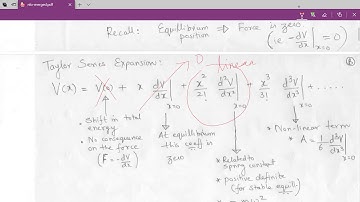 nbv-merged.pdf
Recall: Equilibrium position ⟹ Force is zero
(ie -dV/dx|x=0 = 0)
Taylor Series Expansion:
V(x) = V(0) + x dV/dx|x=0 + x²/2! d²V/dx²|x=0 + x³/3! d³V/dx³|x=0 + .....
0 linear
* Shift in total energy
* No consequence on the force
(F = -dV/dx)
At equilibrium this coeff is zero
* Related to spring constant
* positive definite
(for stable equili)
* Non-linear term
* A = 1/6 d³V/dx³|x=0